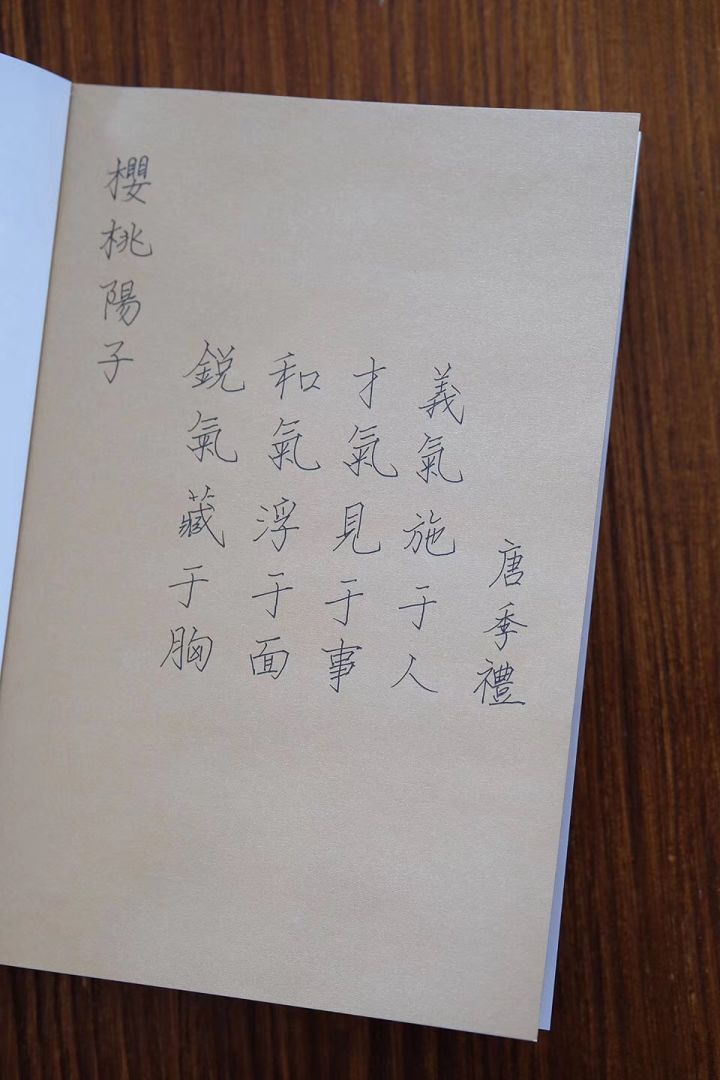 櫻桃陽子
鋭氣藏于胸
和氣浮于面
才氣見于事
義氣施于人
唐季禮